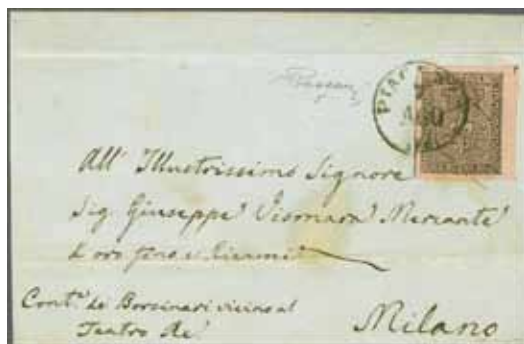 PIAC
AGO
All' Illustrissimo Signore
Sig. Giuseppe Vismara Mercante
d'oro fino e
Cont.ª de Borsinari vicino al
Teatro Re.
Milano